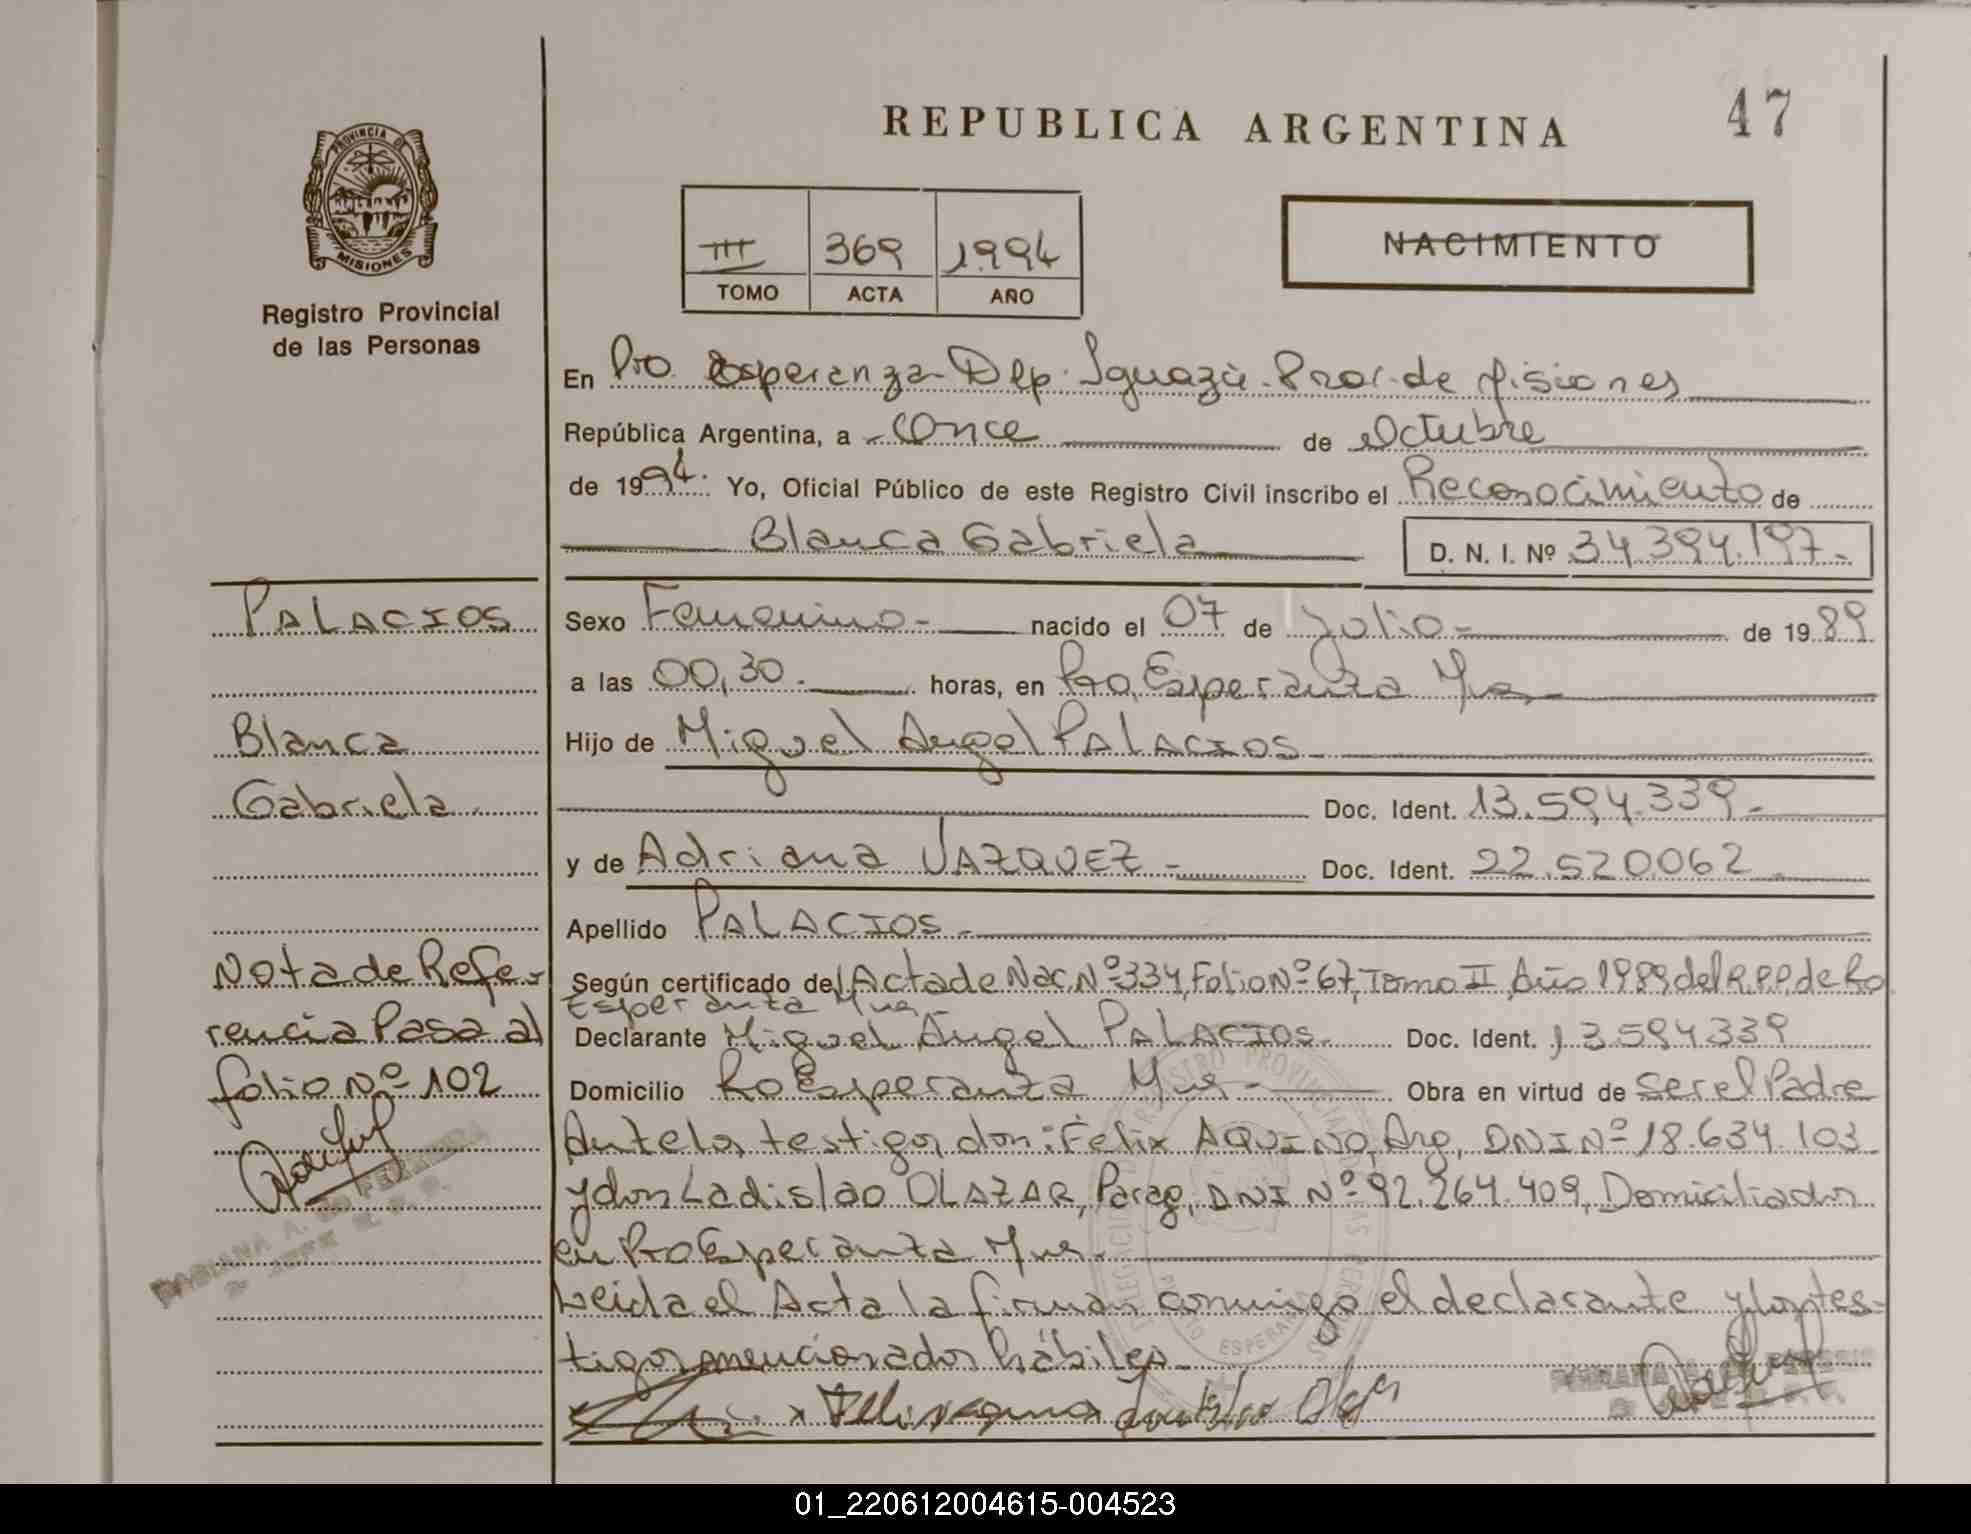 REPUBLICA ARGENTINA
47
PROVINCIA DE
MISIONES
Registro Provincial
de las Personas
III 369 1994
TOMO ACTA AÑO
NACIMIENTO
En Pto. Esperanza - Dep. Iguazú. Prov. de Misiones
República Argentina, a - Once de Octubre
de 1994. Yo, Oficial Público de este Registro Civil inscribo el Reconocimiento de
Blanca Gabriela D. N. I. Nº 34.394.197.-
PALACIOS
Blanca
Gabriela.
Sexo Femenino.- nacido el 07 de Julio.- de 1989
a las 00,30.- horas, en Pto. Esperanza Mnes.-
Hijo de Miguel Angel PALACIOS.-
Doc. Ident. 13.594.339.-
y de Adriana VAZQUEZ.- Doc. Ident. 22.520.062.-
Apellido PALACIOS.-
Nota de Refe-
rencia Pasa al
folio Nº 102
Según certificado del Acta de Nac. Nº 334, Folio Nº 67, Tomo II, Año 1989, del R.P.P. de Pto
Esperanza Mnes.-
Declarante Miguel Angel PALACIOS. Doc. Ident. 13.594.339
Domicilio Pto Esperanza Mnes.- Obra en virtud de Ser el Padre
Ante los testigos don: Felix AQUINO, Arg., DNI Nº 18.634.103
y don Ladislao OLAZAR, Parag., DNI Nº 92.264.409, Domiciliados
en Pto Esperanza Mnes.-
Leida el Acta la firman conmigo el declarante y los tes-
tigos mencionados hábiles.-
01_220612004615-004523